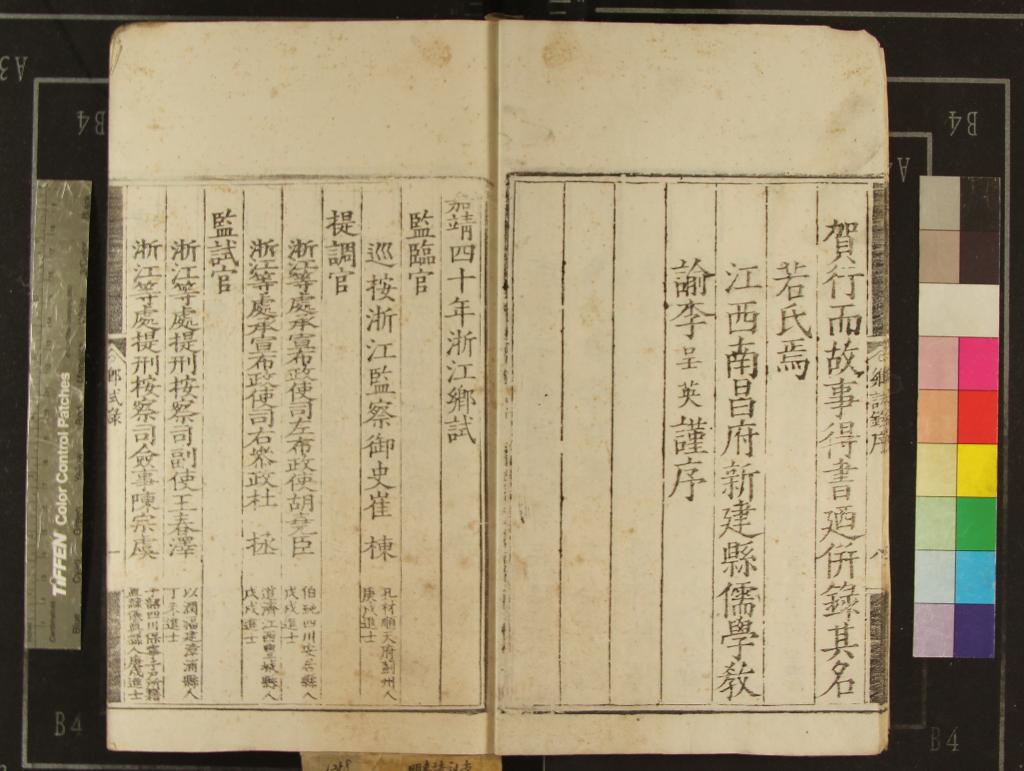 賀行而故事得書廼併錄其名
若氏焉
江西南昌府新建縣儒學教
諭李呈英謹序
嘉靖四十年浙江鄉試
監臨官
巡按浙江監察御史崔 棟
孔材順天府薊州人
庚戌進士
提調官
浙江等處承宣布政使司左布政使胡堯臣
伯純四川安居縣人
戊戌進士
浙江等處承宣布政使司右叅政杜 拯
道濟江西豐城縣人
戊戌進士
監試官
浙江等處提刑按察司副使王春澤
以潤福建漳浦縣人
丁未進士
浙江等處提刑按察司僉事陳宗虞
于韶四川保寧千戶所籍
直隸儀真縣人庚戌進士
鄉試錄
一
鄉試錄序
八
TIFFEN Color Control Patches
A3
B4
B4
A
B4
B4